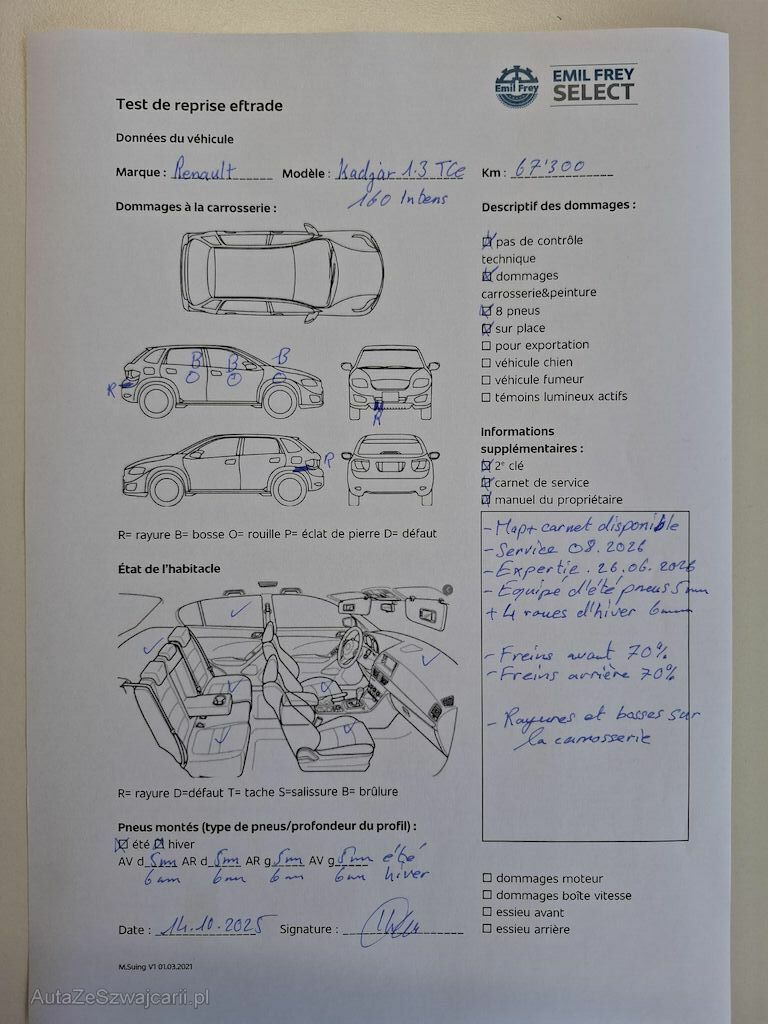 Emil Frey
EMIL FREY
SELECT
Test de reprise eftrade
Données du véhicule
Marque : Renault Modèle : Kadjar 1.3 TCe Km : 67'300
160 Intens
Dommages à la carrosserie :
Descriptif des dommages :
pas de contrôle
technique
dommages
carrosserie&peinture
8 pneus
sur place
pour exportation
véhicule chien
véhicule fumeur
témoins lumineux actifs
B B B
R
R
R
R= rayure B= bosse O= rouille P= éclat de pierre D= défaut
Informations
supplémentaires :
2e clé
carnet de service
manuel du propriétaire
- Map+ carnet disponible
- Service 08.2026
- Expertie . 26.06.2026
- Equipé d'été pneus 5mm
+ 4 roues d'hiver 6mm
- Freins avant 70%
- Freins arrière 70%
- Rayures et bosses sur
la carrosserie
État de l'habitacle
R= rayure D=défaut T= tache S=salissure B= brûlure
Pneus montés (type de pneus/profondeur du profil) :
été hiver
AV d 5mm AR d 5mm AR g 5mm AV g 5mm été
6mm 6mm 6mm 6mm hiver
dommages moteur
dommages boîte vitesse
essieu avant
essieu arrière
Date : 14.10.2025 Signature :
M.Suing V1 01.03.2021
AutaZeSzwajcarii.pl